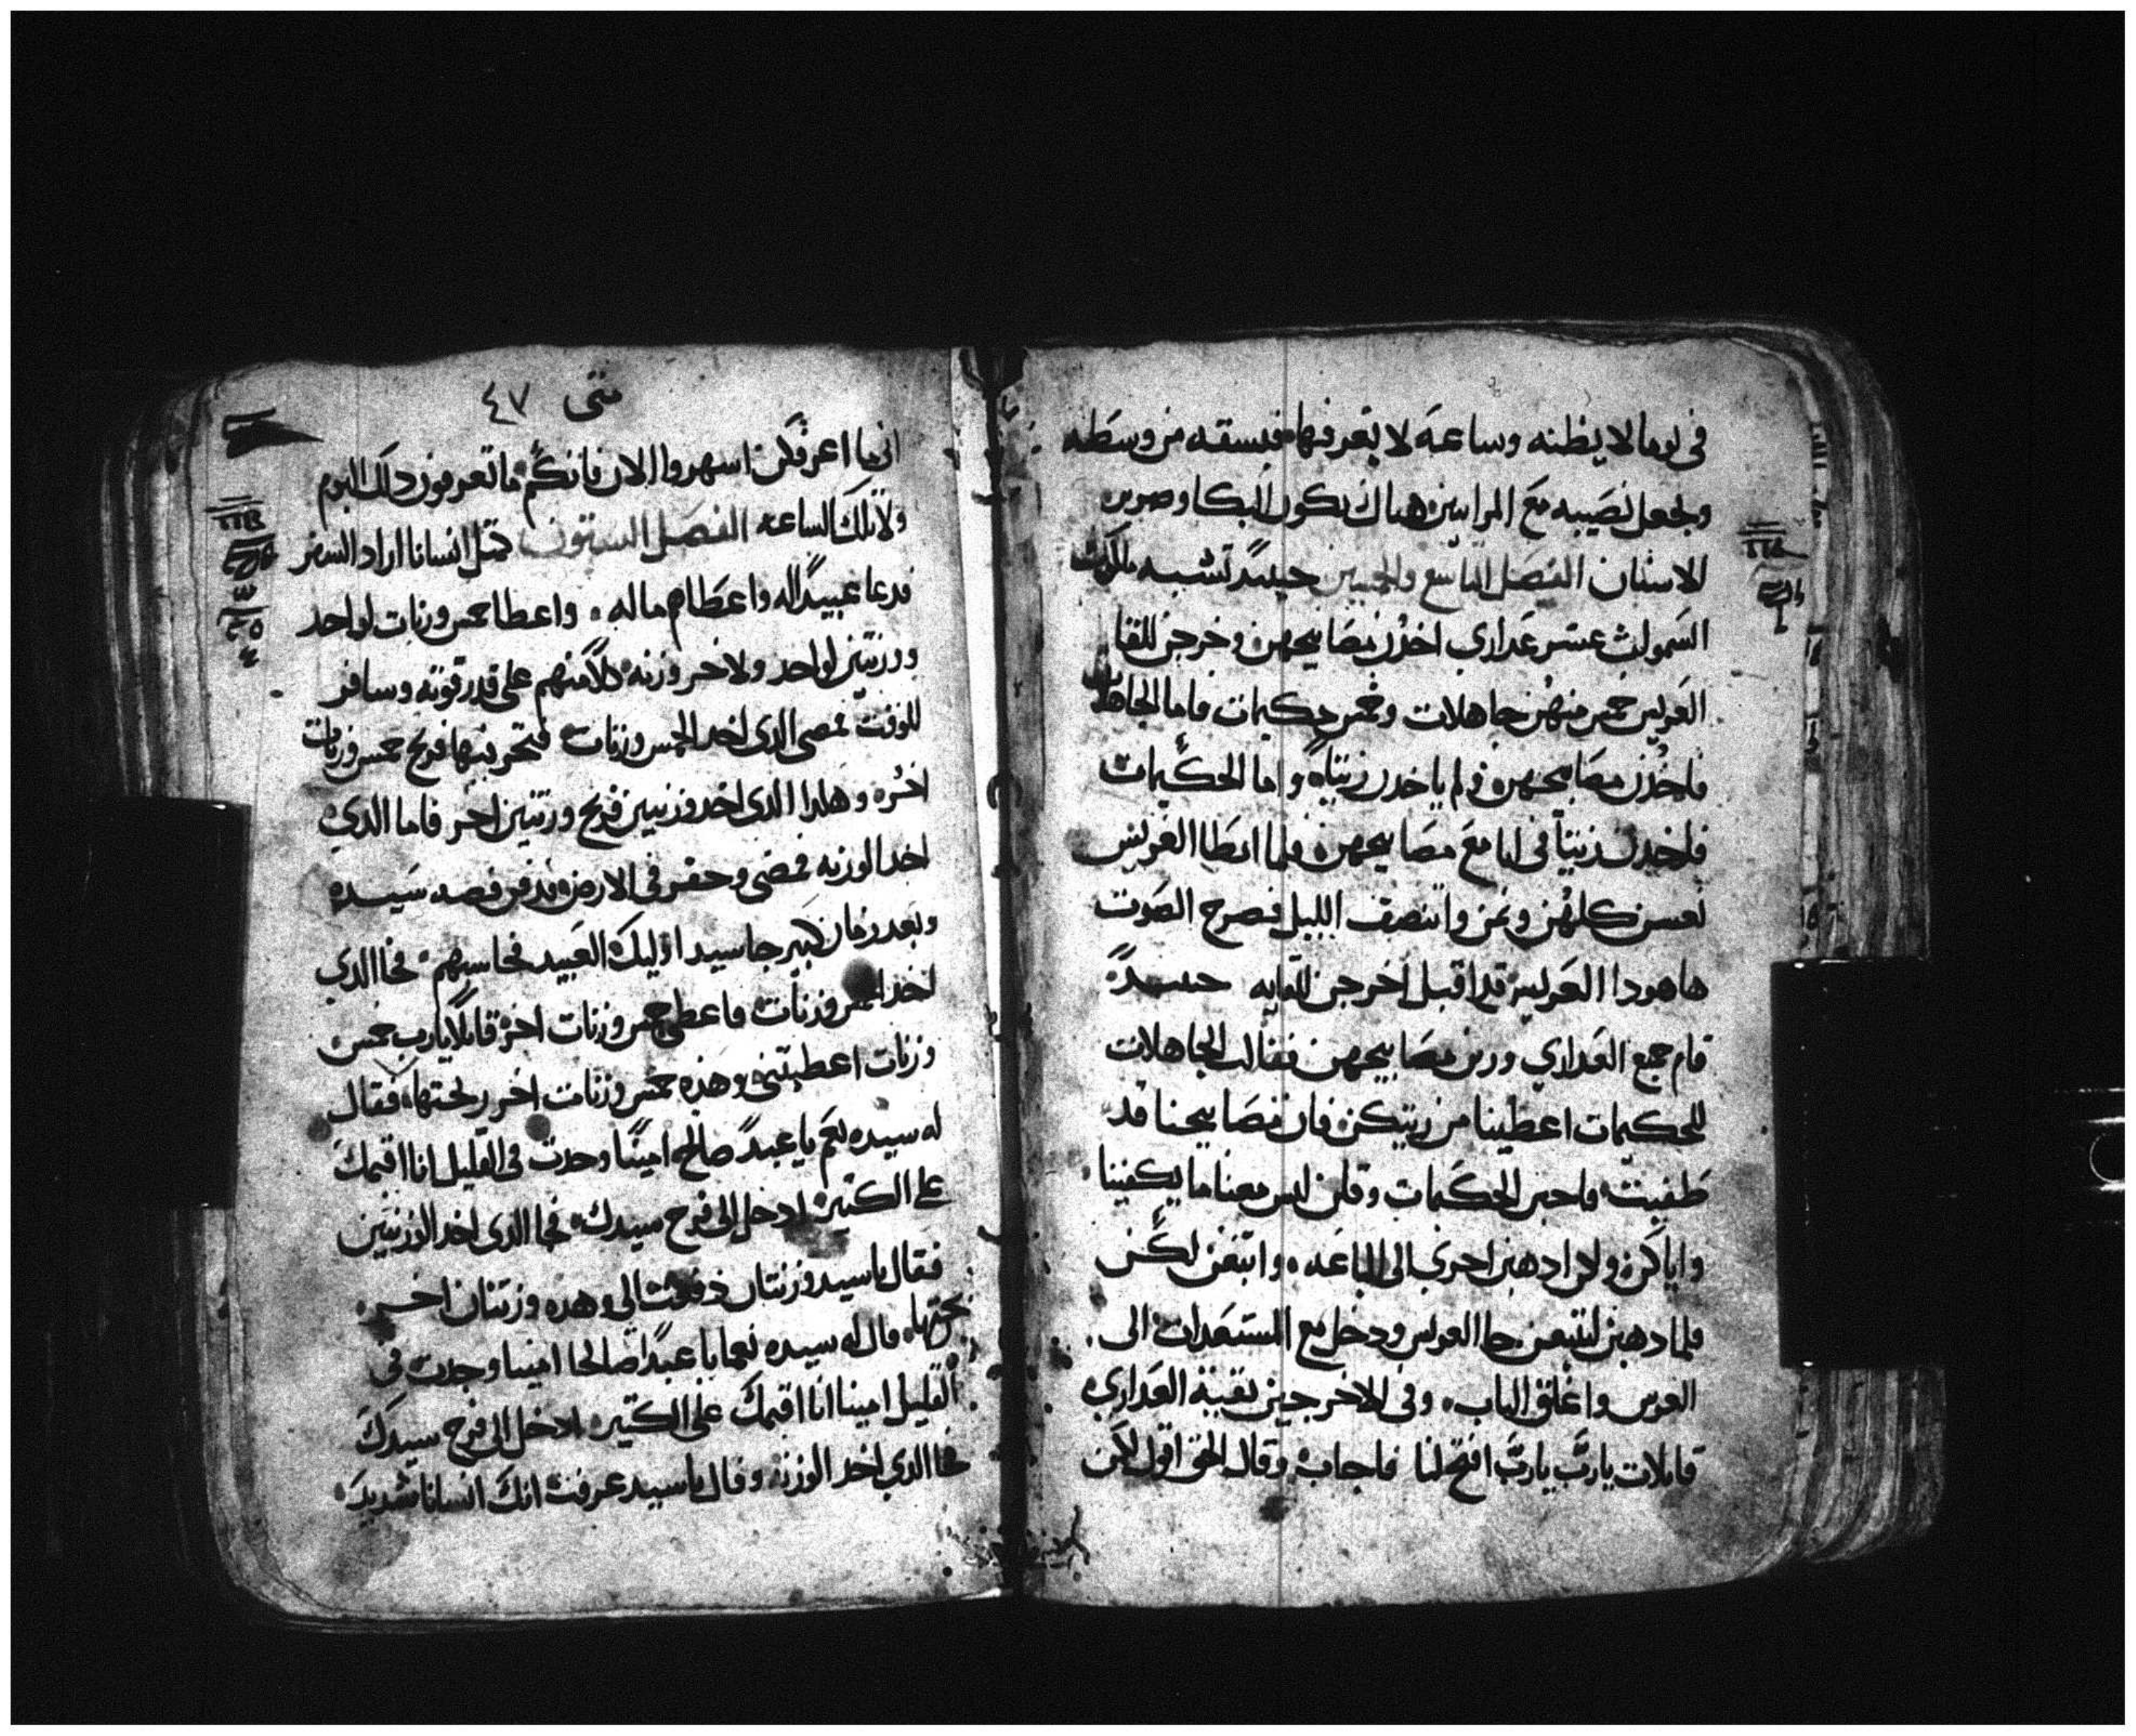 في يوما لا يظنه وساعة لا يعرفها فيسقه من وسطه
ويجعل نصيبه مع المرايين هناك يكون البكا وصرير
الاسنان الفصل التاسع والخمسين حينيدً تشبه ملكوت
السموات عشر عداري اخذن مصابيحهن وخرجن للقا
العريس خمس منهن جاهلات وخمس حكيمات فاما الجاهلات
فاخذن مصابيحهن ولم ياخدن زيتاً واما الحكيمات
فاخدن زيتاً في انا مع مصابيحهن فلما ابطا العريس
نعسن كلهن ونمن وانتصف الليل فصرح الصوت
هاهودا العريس قد اقبل اخرجن للقايه حينيدً
قام جميع العداري وزين مصابيحهن فقالت الجاهلات
للحكيمات اعطينا من زيتكن فان مصابيحنا قد
طفيت فاجبن الحكيمات وقلن ليس معنا ما يكفينا
واياكن ولكن ادهبن احرى الى الباعه وابتعن لكن
فلما دهبن ليبتعن جا العريس ودخل مع المستعدات الى
العرس واغلق الباب وفي الاخر جين بقيتة العداري
قايلات يارب يارب افتح لنا فاجاب وقال الحق اقول لكن
متى ٤٧
اني ما اعرفكن اسهروا الان فانكم ما تعرفون داك اليوم
ولا تلك الساعه الفصل الستون متل انسانا اراد السفر
فدعا عبيداً له واعطاهم ماله واعطا خمس وزنات لواحد
ووزنتين لواحد ولاخر وزنه كلاً منهم على قدر قوته وسافر
للوقت فمضى الدي اخد الخمس وزنات فتجر بيها فربح خمس وزنات
اخره وهكدا الدي اخد وزنتين فربح وزنتين اخر فاما الدي
اخد الوزنه فمضى وحفر في الارض ودفن فضه سيده
وبعد زمان كبير جا سيد اوليك العبيد فحاسبهم فجا الدي
اخد الخمس وزنات فاعطى خمس وزنات اخر قايلاً يارب خمس
وزنات اعطيتني وهذه خمس وزنات اخر ربحتها فقال
له سيده نعم يا عبدً صالح امينًا وجدت في القليل انا اقيمك
على الكتير ادخل الى فرح سيدك فجا الدي اخد الوزنتين
فقال ياسيد وزنتان دفعت الي وهده وزنتان اخر
ربحتها قال له سيده نعما يا عبداً صالحا امينا وجدت في
القليل امينا انا اقيمك على الكتير ادخل الى فرح سيدك
فجا الدي اخد الوزنة وقال ياسيد عرفت انك انسانا شديد